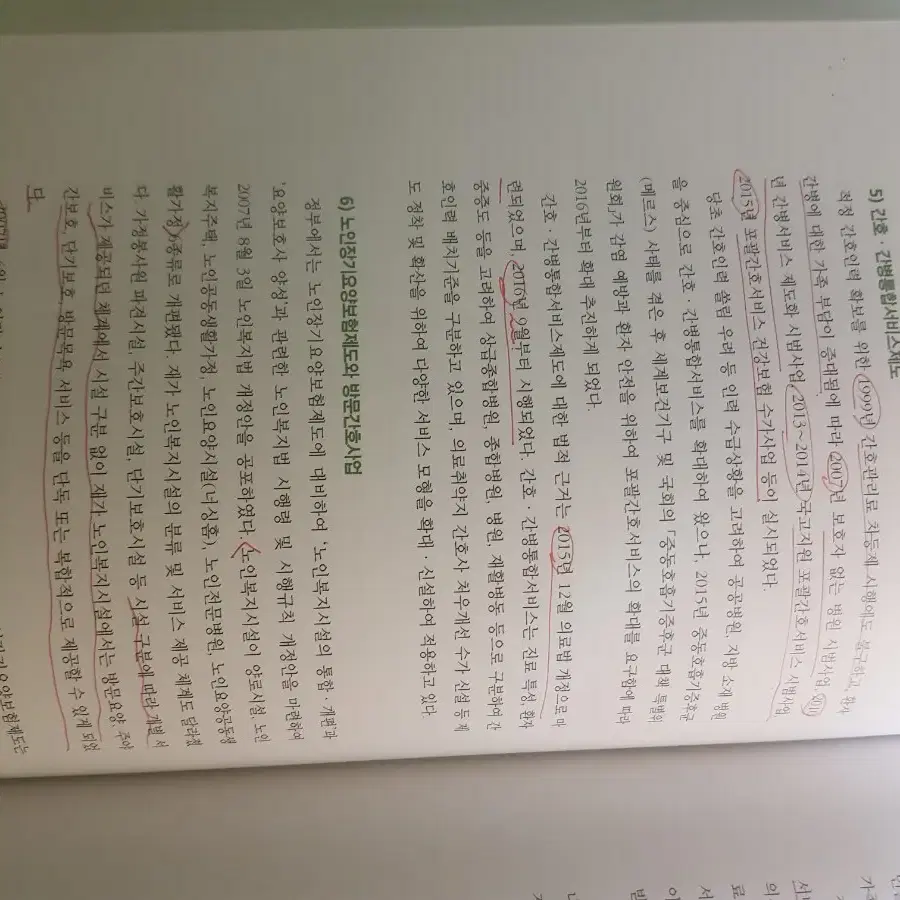 5) 간호 · 간병통합서비스제도
적정 간호인력 확보를 위한 1999년 간호관리료 차등제 시행에도 불구하고, 환자
간병에 대한 가족 부담이 증대됨에 따라 2007년 보호자 없는 병원 시범사업, 2010
년 간병서비스 제도화 시범사업, 2013~2014년 국고지원 포괄간호서비스 시범사업
2015년 포괄간호서비스 건강보험 수가사업 등이 실시되었다.
당초 간호인력 쏠림 우려 등 인력 수급상황을 고려하여 공공병원, 지방 소재 병원
을 중심으로 간호 · 간병통합서비스를 확대하여 왔으나, 2015년 중동호흡기증후군
(메르스) 사태를 겪은 후 세계보건기구 및 국회의 「중동호흡기증후군 대책 특별위
원회」가 감염 예방과 환자 안전을 위하여 포괄간호서비스의 확대를 요구함에 따라
2016년부터 확대 추진하게 되었다.
간호 · 간병통합서비스제도에 대한 법적 근거는 2015년 12월 의료법 개정으로 마
련되었으며, 2016년 9월부터 시행되었다. 간호 · 간병통합서비스는 진료 특성, 환자
중증도 등을 고려하여 상급종합병원, 종합병원, 병원, 재활병동 등으로 구분하여 간
호인력 배치기준을 구분하고 있으며, 의료취약지 간호사 처우개선 수가 신설 등 제
도 정착 및 확산을 위하여 다양한 서비스 모형을 확대 · 신설하여 적용하고 있다.
6) 노인장기요양보험제도와 방문간호사업
정부에서는 노인장기요양보험제도에 대비하여 '노인복지시설의 통합 · 개편과
'요양보호사 양성'과 관련한 노인복지법 시행령 및 시행규칙 개정안을 마련하여
2007년 8월 3일 노인복지법 개정안을 공포하였다. 노인복지시설이 양로시설, 노인
복지주택, 노인공동생활가정, 노인요양시설(너싱홈), 노인전문병원, 노인요양공동생
활가정) 종류로 개편됐다. 재가 노인복지시설의 분류 및 서비스 제공 체계도 달라졌
다. 가정봉사원 파견시설, 주간보호시설, 단기보호시설 등 시설 구분에 따라 개별 서
비스가 제공되던 체계에서 시설 구분 없이 재가 노인복지시설에서는 방문요양, 주야
간보호, 단기보호, 방문목욕 서비스 등을 단독 또는 복합적으로 제공할 수 있게 되었
다.